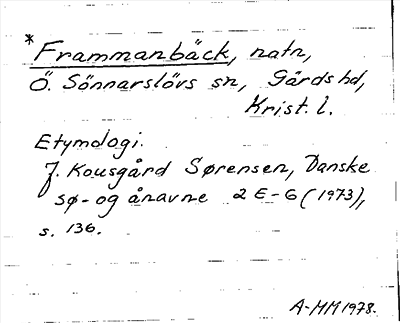 * Frammanbäck, natn,
Ö. Sönnarslövs sn, Gärds hd,
Krist. l.
Etymologi.
J. Kousgård Sørensen, Danske
sø- og ånavne 2 E-G (1973),
s. 136.
A-MM 1978.